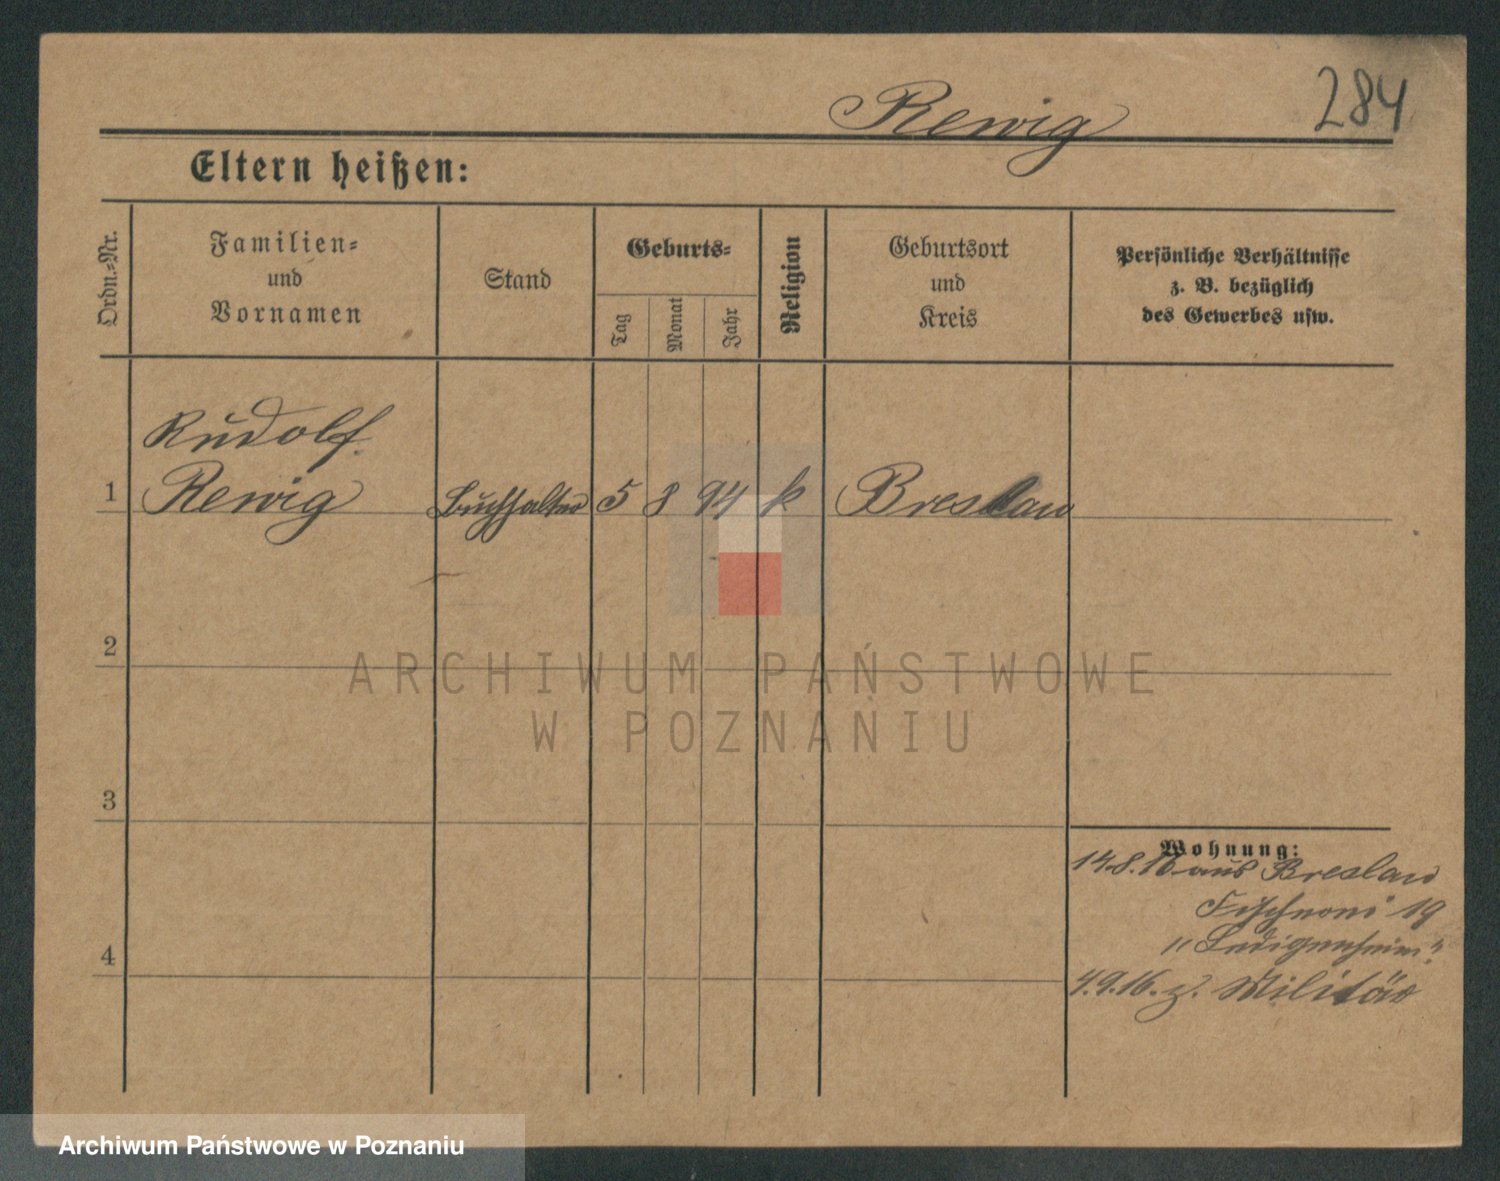 Rewig
284
Eltern heißen:
Ordn.-Nr.
Familien-
und
Vornamen
Stand
Geburts-
Tag
Monat
Jahr
Religion
Geburtsort
und
Kreis
Persönliche Verhältnisse
z. B. bezüglich
des Gewerbes usw.
Rudolf
1 Rewig Buchhalter 5 8 94 k Breslau
2
3
4
Wohnung:
14.8.16 aus Breslau
19
"Ledigenheim"
4.9.16. z. Militär
ARCHIWUM PAŃSTWOWE
W POZNANIU
Archiwum Państwowe w Poznaniu